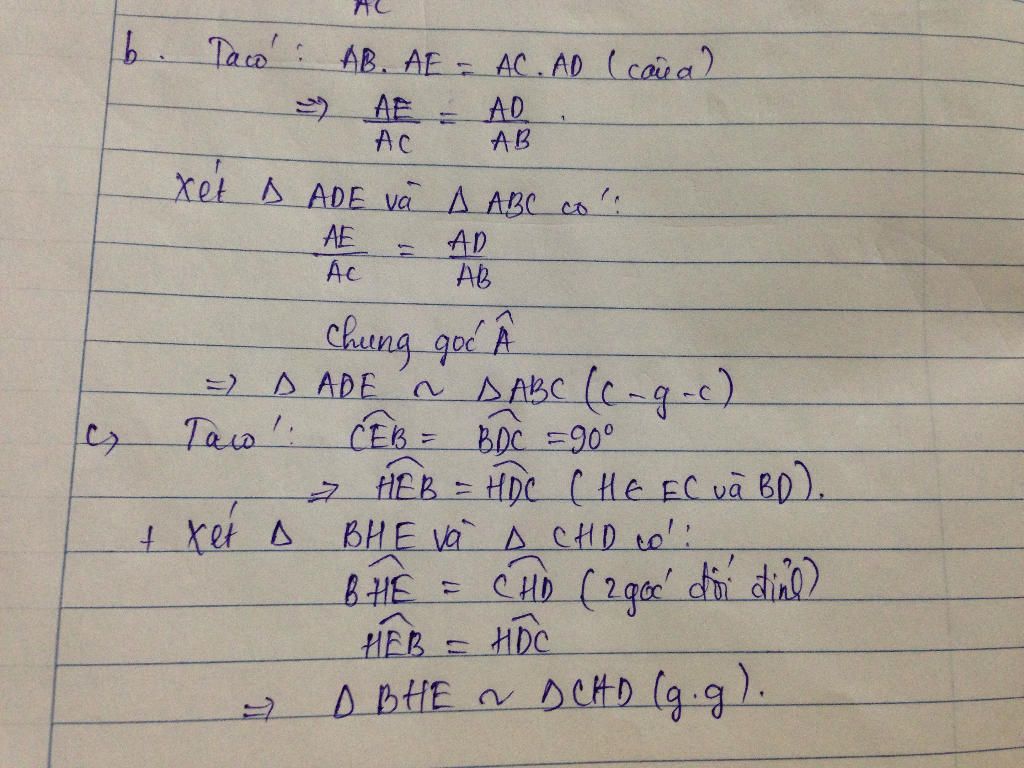 AC
b. Ta có: AB. AE = AC. AD (câu a)
=> AE/AC = AD/AB.
Xét Δ ADE và Δ ABC có:
AE/AC = AD/AB
Chung góc Â
=> Δ ADE ~ Δ ABC (c-g-c)
c, Ta có: \widehat{CEB} = \widehat{BDC} = 90°
=> \widehat{HEB} = \widehat{HDC} (H ∈ EC và BD).
+ Xét Δ BHE và Δ CHD có:
\widehat{BHE} = \widehat{CHD} (2 góc đối đỉnh)
\widehat{HEB} = \widehat{HDC}
=> Δ BHE ~ Δ CHD (g.g).